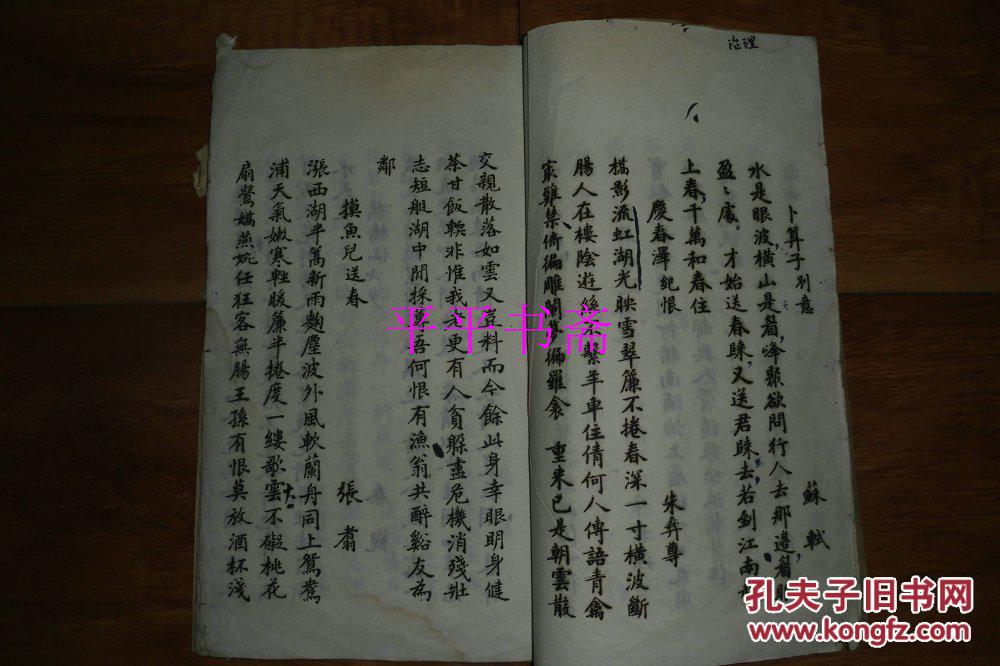 治理
卜算子別意 蘇軾
水是眼波,橫山是眉,峰聚欲問行人去那邊,眉眼
盈〻處。才始送春歸,又送君歸去,若到江南
上春,千萬和春住
慶春澤 紀恨 朱彝尊
橋影流虹湖光映雪翠簾不捲春深一寸橫波斷
腸人在樓陰遊絲不繫羊車住倩何人傳語青禽
最難禁倚徧雕闌夢徧羅衾 重來已是朝雲散
交親散落如雲又豈料而今餘此身幸眼明身健
茶甘飯輭非惟我老更有人貧躲盡危機消殘壯
志短艇湖中閒採蓴吾何恨有漁翁共醉谿友為
鄰
摸魚兒送春 張翥
漲西湖半篙新雨麴塵波外風軟蘭舟同上鴛鴦
浦天氣嫩寒輕暖簾半捲度一縷歌雲不礙桃花
扇鶯嬌燕婉任狂客無腸王孫有恨莫放酒杯淺
平平书斋
孔夫子旧书网
www.kongfz.com